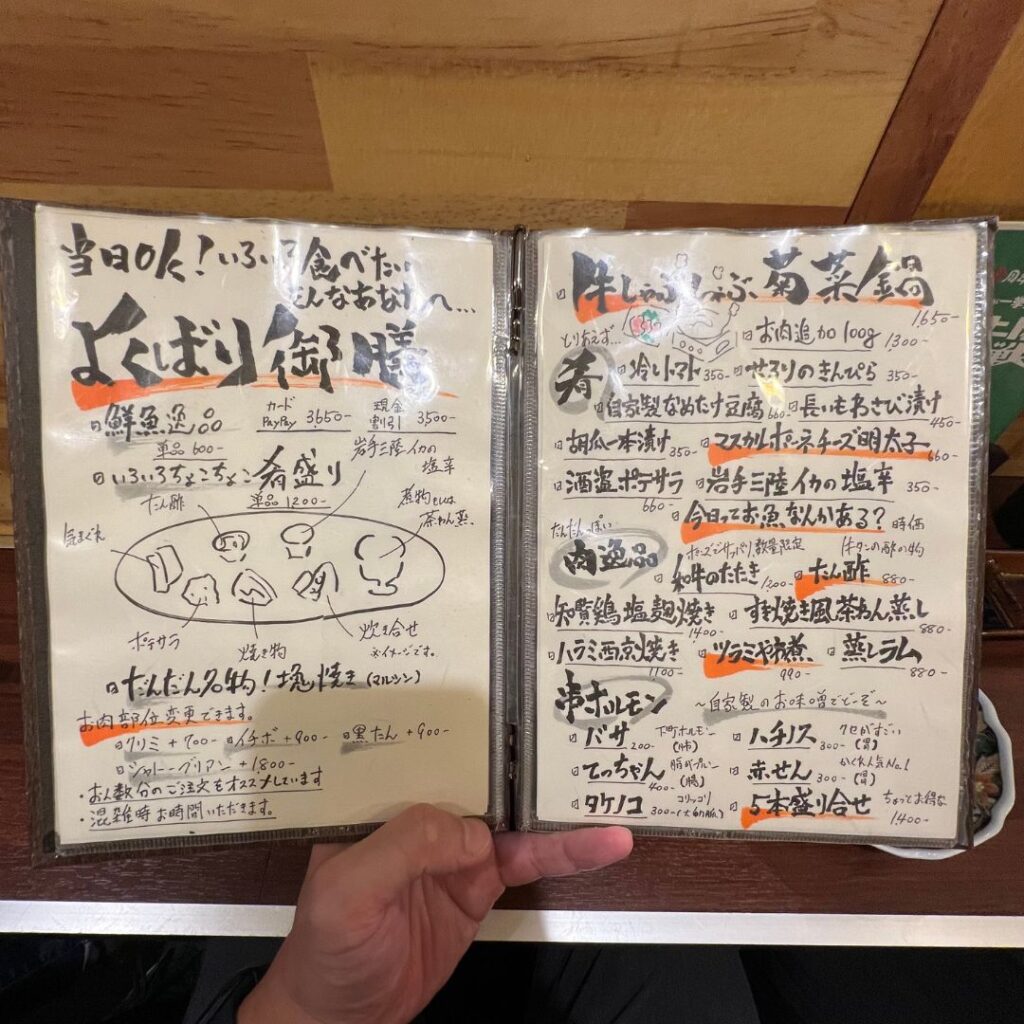 当日OK！いろいろ食べたい
そんなあなたへ…
よくばり御膳
鮮魚逸品
カード PayPay 3650-
現金割引 3,500-
単品 600-
いろいろちょこちょこ肴盛り
単品 1200-
岩手三陸イカの塩辛
たん酢
煮物もしくは茶わん蒸し
気まぐれ
ポテサラ
焼き物
炊き合せ
※イメージです。
だんだん名物！塊焼き(マルシン)
お肉部位変更できます。
クリミ +700- イチボ +900- 黒たん +900-
シャトーブリアン +1,800-
・お人数分のご注文をオススメしています
・混雑時お時間いただきます。
牛しゃぶしゃぶ菊菜鍋
1,650-
お肉追加100g 1300-
とりあえず…
肴
冷しトマト 350- せろりのきんぴら 350-
自家製なめたけ豆腐 660- 長いもわさび漬け 450-
胡瓜一本漬け 350- マスカルポーネチーズ明太子 660-
酒盗ポテサラ 660- 岩手三陸イカの塩辛 350-
今日ってお魚なんかある？ 時価
だんだんっぽい
肉逸品
ポン酢でサッパリ数量限定
和牛のたたき 1200-
牛タンの酢の物
たん酢 880-
知覧鶏塩麹焼き 1400- すき焼き風茶わん蒸し 880-
ハラミ西京焼き 1100- ツラミやわ煮 990- 蒸しラム 880-
串ホルモン ～自家製のお味噌でどーぞ～
バサ 200- 下町ホルモン(肺)
ハチノス 300- クセがすごい(胃)
てっちゃん 400- (腸)
赤せん 300- かくれ人気No.1(胃)
タケノコ 300- コリッコリ(大動脈)
5本盛り合せ ちょっとお得な 1,400-